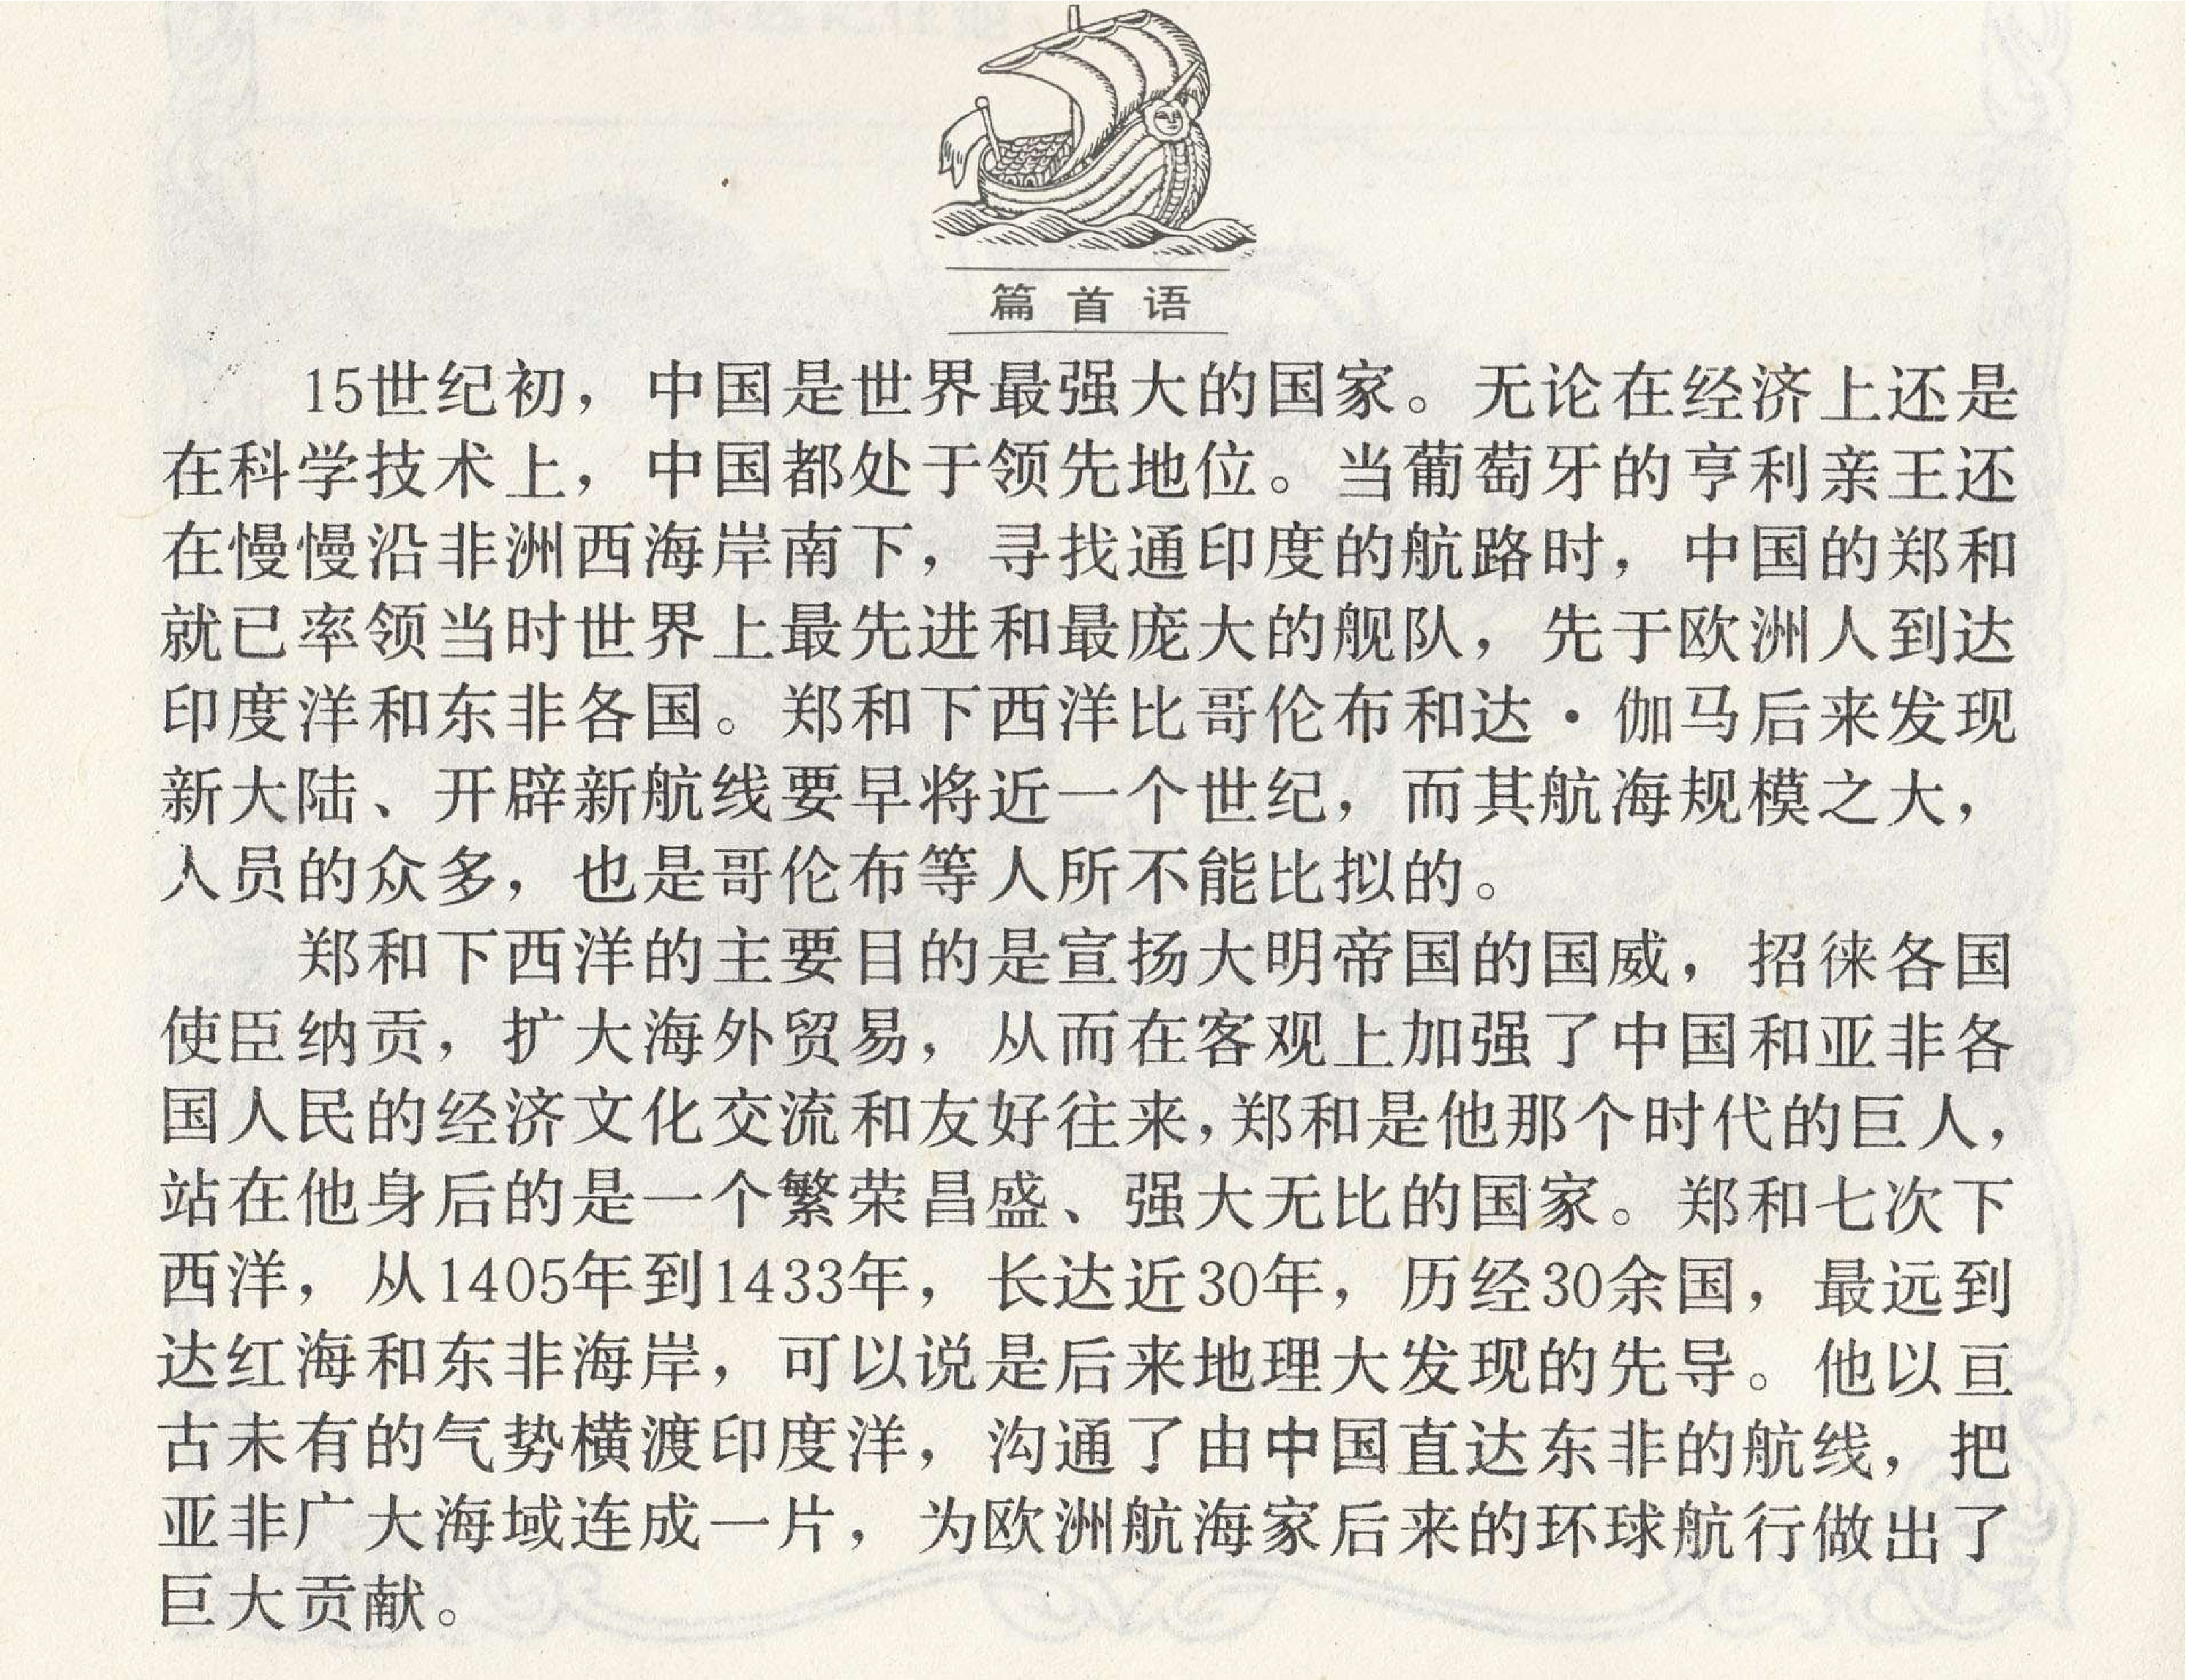 篇首语
15世纪初，中国是世界最强大的国家。无论在经济上还是
在科学技术上，中国都处于领先地位。当葡萄牙的亨利亲王还
在慢慢沿非洲西海岸南下，寻找通印度的航路时，中国的郑和
就已率领当时世界上最先进和最庞大的舰队，先于欧洲人到达
印度洋和东非各国。郑和下西洋比哥伦布和达·伽马后来发现
新大陆、开辟新航线要早将近一个世纪，而其航海规模之大，
人员的众多，也是哥伦布等人所不能比拟的。
郑和下西洋的主要目的是宣扬大明帝国的国威，招徕各国
使臣纳贡，扩大海外贸易，从而在客观上加强了中国和亚非各
国人民的经济文化交流和友好往来，郑和是他那个时代的巨人，
站在他身后的是一个繁荣昌盛、强大无比的国家。郑和七次下
西洋，从1405年到1433年，长达近30年，历经30余国，最远到
达红海和东非海岸，可以说是后来地理大发现的先导。他以亘
古未有的气势横渡印度洋，沟通了由中国直达东非的航线，把
亚非广大海域连成一片，为欧洲航海家后来的环球航行做出了
巨大贡献。